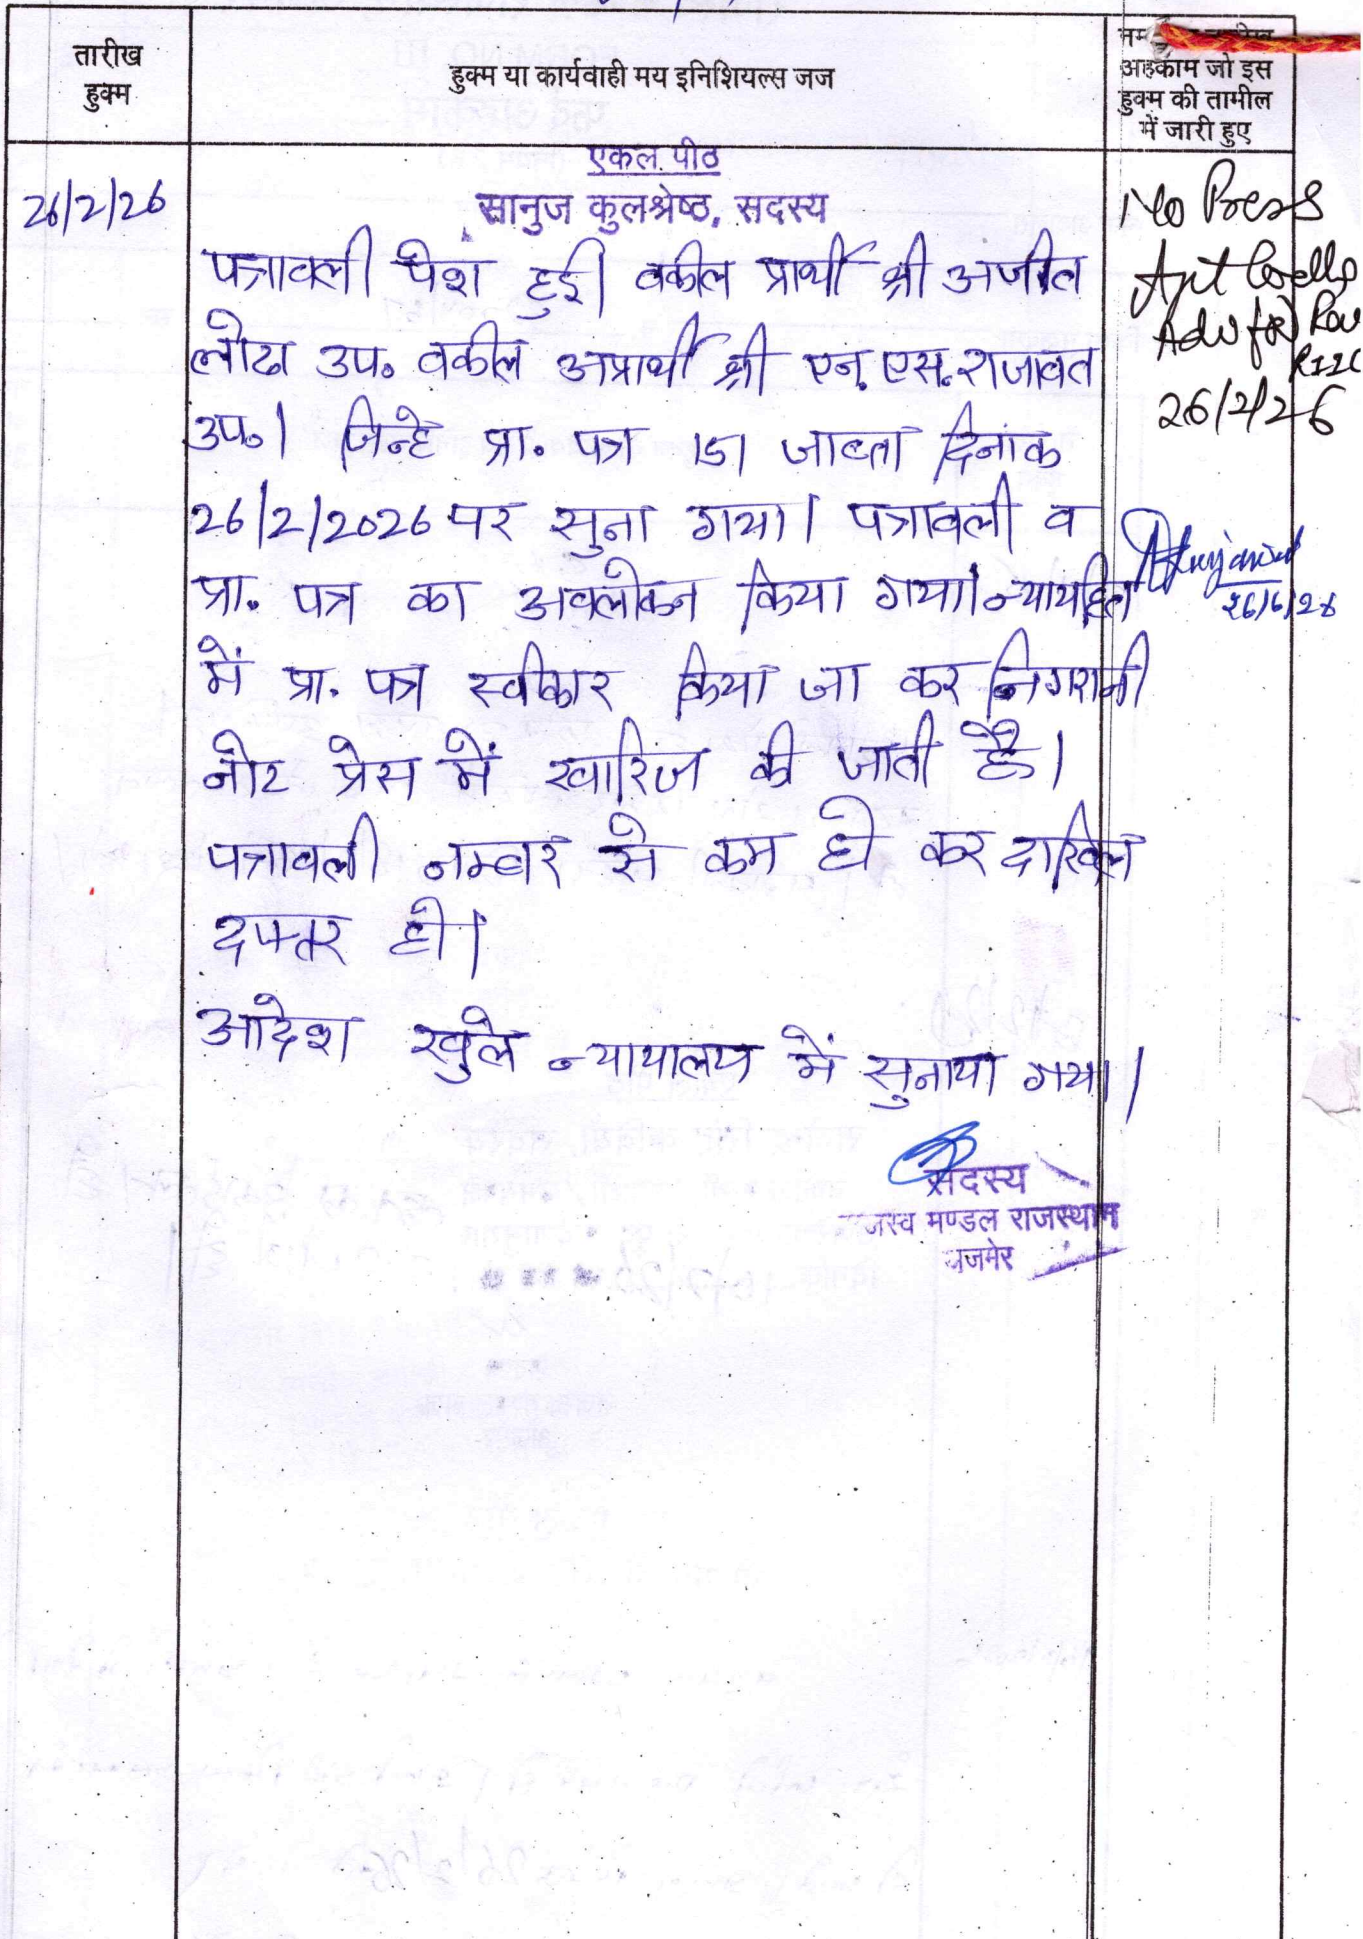 तारीख
हुक्म
हुक्म या कार्यवाही मय इनिशियल्स जज
अहकाम जो इस
हुक्म की तामील
में जारी हुए
26/2/26
एकल पीठ
सानुज कुलश्रेष्ठ, सदस्य
पत्रावली पेश हुई। वकील प्रार्थी श्री अजीत
लोढा उप. वकील अप्रार्थी श्री एन.एस.राजावत
उप.। जिन्हे प्रा. पत्र 151 जाब्ता दिनांक
26/2/2026 पर सुना गया। पत्रावली व
प्रा. पत्र का अवलोकन किया गया। न्यायहित
में प्रा. पत्र स्वीकार किया जा कर निगरानी
नोट प्रेस में खारिज की जाती है।
पत्रावली नम्बर से कम हो कर दाखिल
दफ्तर हो।
आदेश खुले न्यायालय में सुनाया गया।
सदस्य
मण्डल राजस्थान
No Press
Adv for
26/2/26